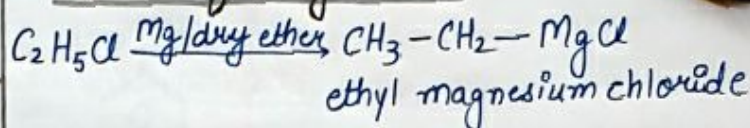 C₂H₅Cl Mg/dry ether CH₃-CH₂-MgCl
ethyl magnesium chloride